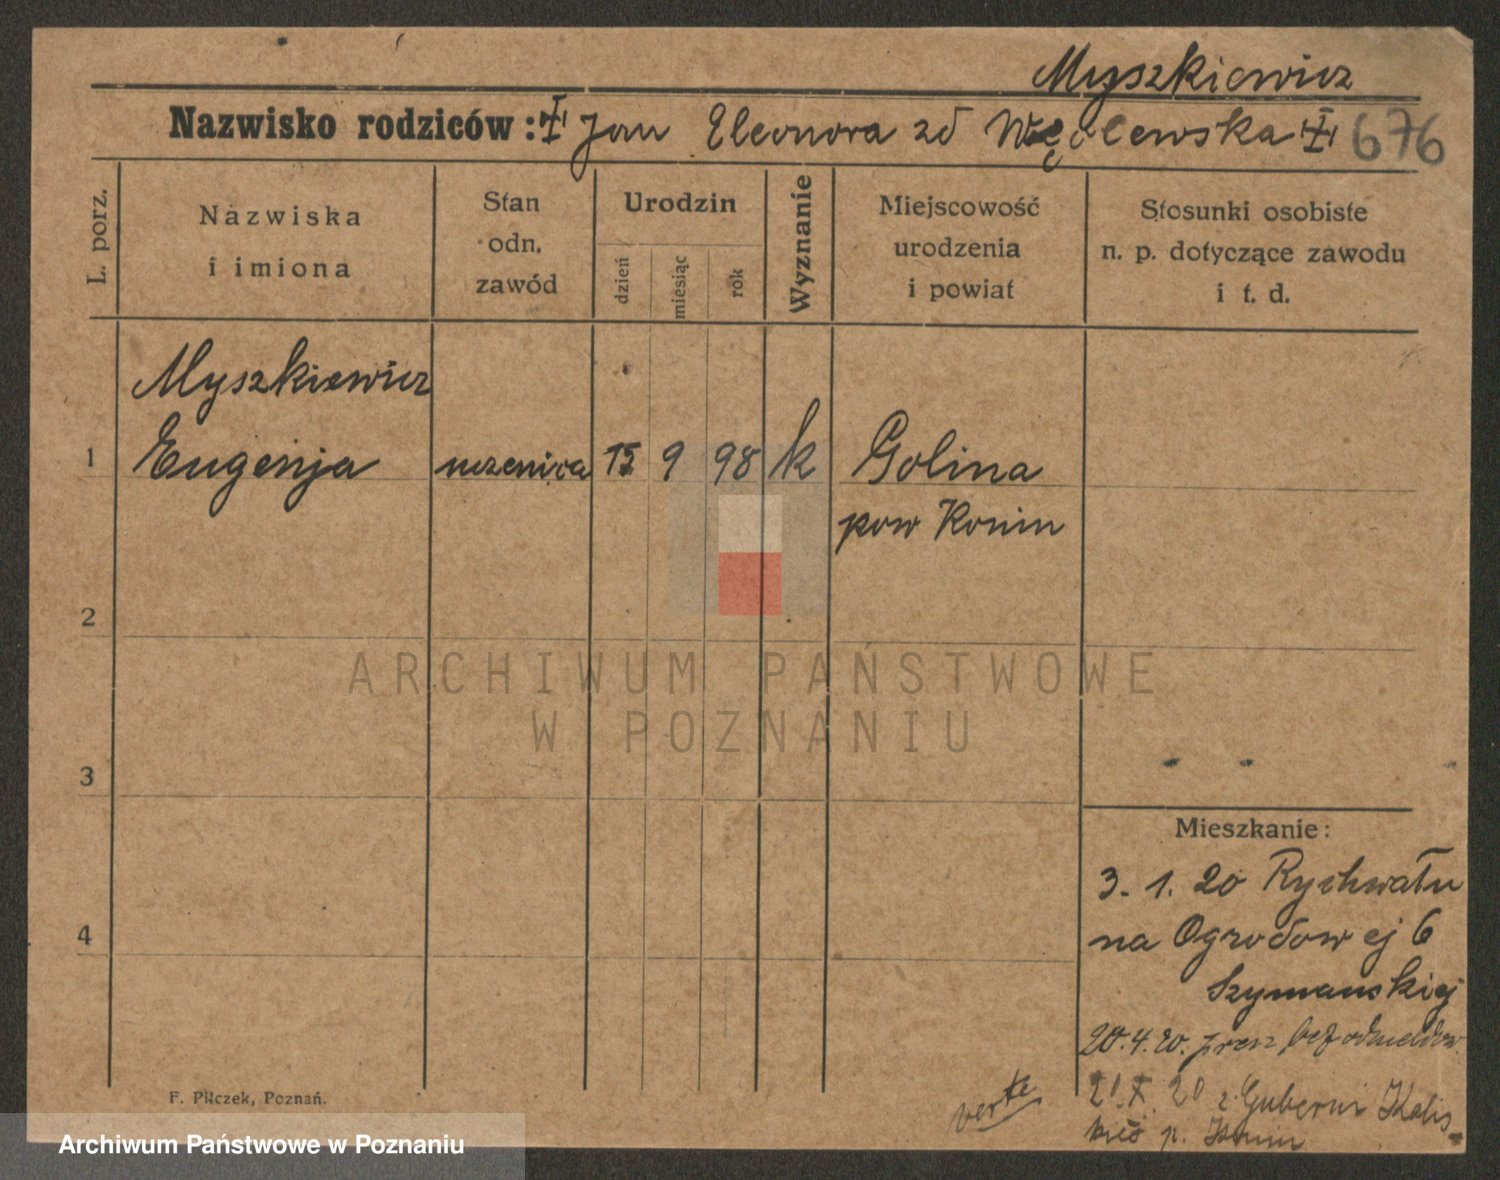 Myszkiewicz
Nazwisko rodziców: Jan Eleonora zd Węclewska 676
L. porz.
Nazwiska
i imiona
Stan
odn.
zawód
Urodzin
dzień
miesiąc
rok
Wyznanie
Miejscowość
urodzenia
i powiat
Stosunki osobiste
n. p. dotyczące zawodu
i t. d.
Myszkiewicz
1 Eugenja uczenica 15 9 98 k Golina
pow Konin
2
ARCHIWUM PAŃSTWOWE
W POZNANIU
3
4
Mieszkanie:
3. 1. 20 Rychwału
na Ogrodowej 6
Szymańskiej
20.4.20. przez bez odmeldow.
21 X 20 z Guberni Kalis
kiej p. Konin
verte
F. Pilczek, Poznań.
Archiwum Państwowe w Poznaniu